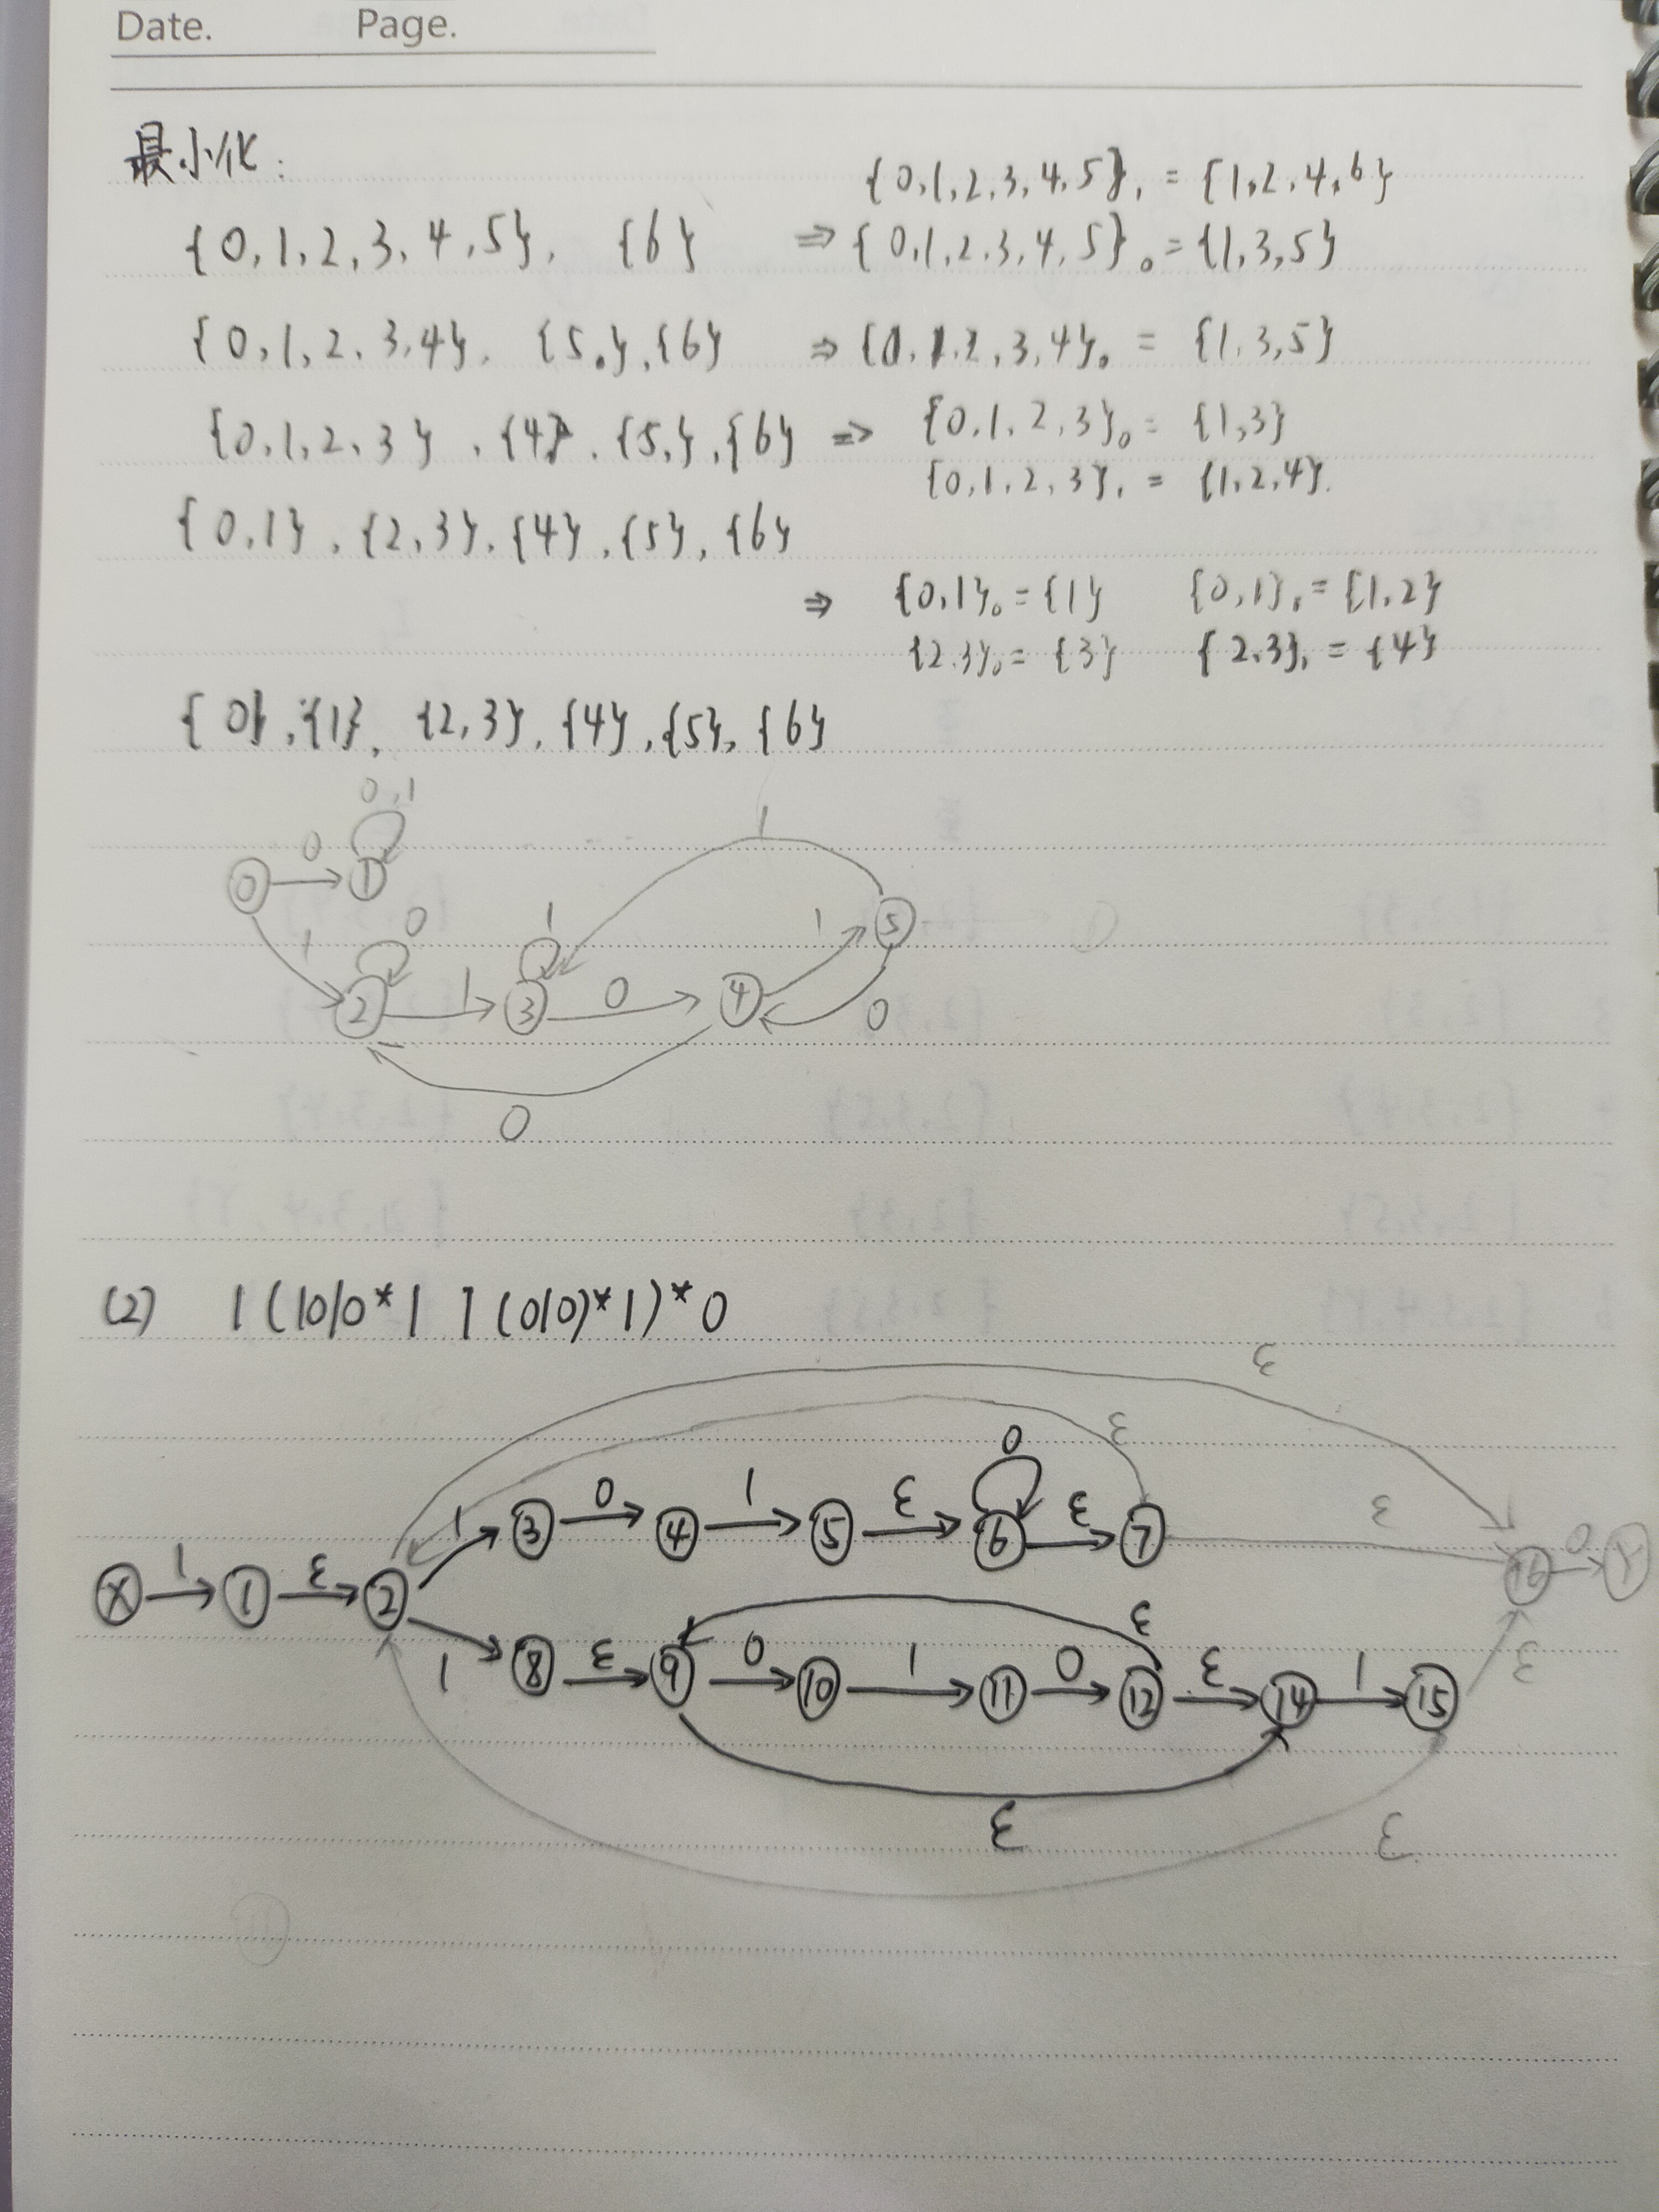 Date. Page.
最小化:
{0,1,2,3,4,5}₁ = {1,2,4,6}
{0,1,2,3,4,5}, {6} ⇒ {0,1,2,3,4,5}₀ = {1,3,5}
{0,1,2,3,4}, {5,}, {6} ⇒ {0,1,2,3,4}₀ = {1,3,5}
{0,1,2,3}, {4}, {5,}, {6} ⇒ {0,1,2,3}₀ = {1,3}
{0,1,2,3}₁ = {1,2,4}.
{0,1}, {2,3}, {4}, {5}, {6}
⇒ {0,1}₀ = {1} {0,1}₁ = {1,2}
{2,3}₀ = {3} {2,3}₁ = {4}
{0}, {1}, {2,3}, {4}, {5}, {6}
0,1
1
0 0 1
0 1 1 5
1
2 1 3 0 4
0
0
(2) 1(1010*1 1(010)*1)*0
ε
ε
0
1 3 0 4 1 5 ε 6 ε 7 ε
X 1 1 ε 2 16 0 Y
ε
1 8 ε 9 0 10 1 11 0 12 ε 14 1 15 ε
ε
ε